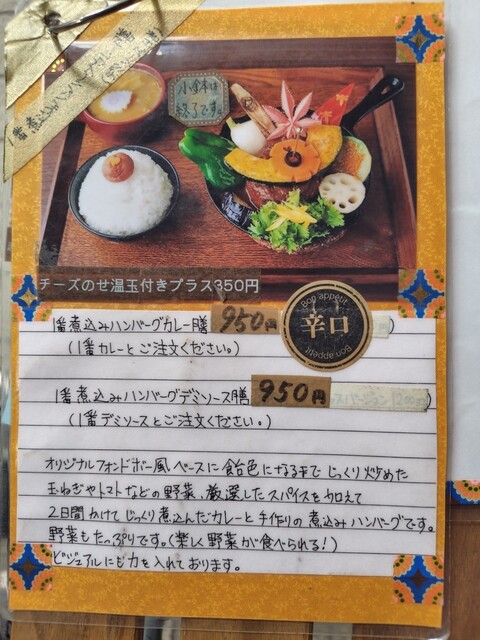 小鉢は
終了です。
チーズのせ温玉付きプラス350円
1番煮込みハンバーグカレー膳 950円
Bon appétit
辛口
Bon appétit
(1番カレーとご注文ください。)
1番煮込みハンバーグデミソース膳 950円
(1番デミソースとご注文ください。)
オリジナルフォンドボー風ベースに飴色になるまでじっくり炒めた
玉ねぎやトマトなどの野菜、厳選したスパイスを加えて
2日間かけてじっくり煮込んだカレーと手作りの煮込みハンバーグです。
野菜もたっぷりです。(楽しく野菜が食べられる!)
ビジュアルにも力を入れております。